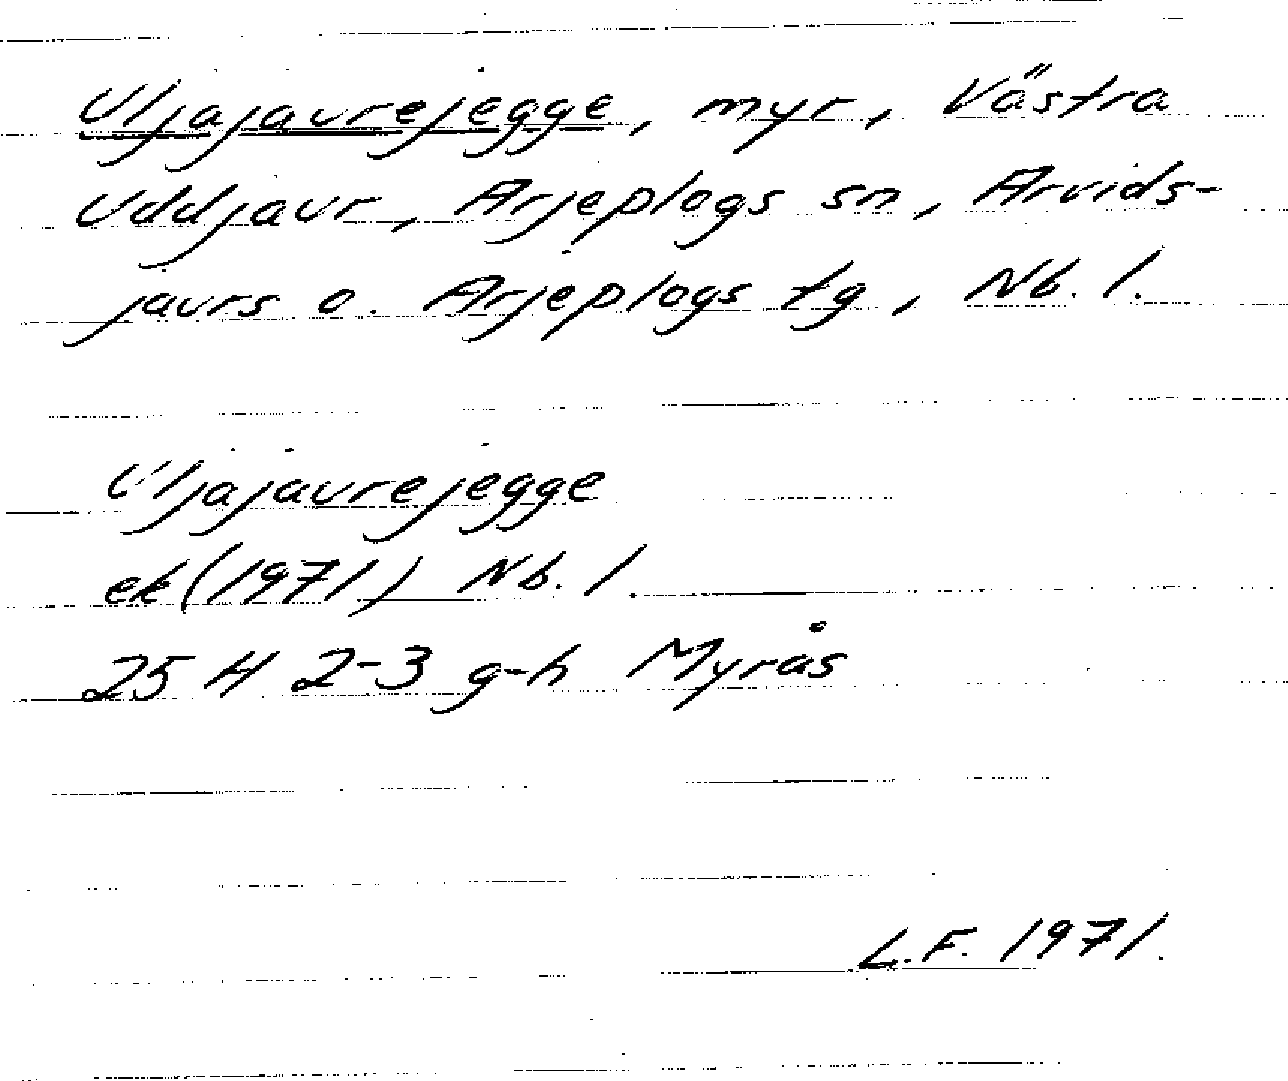 Uljajaurejegge, myr, Västra
Uddjaur, Arjeplogs sn, Arvids-
jaurs o. Arjeplogs tg, Nb. l.
Uljajaurejegge
ek (1971) Nb. l.
25 H 2-3 g-h Myrås
L.F. 1971.